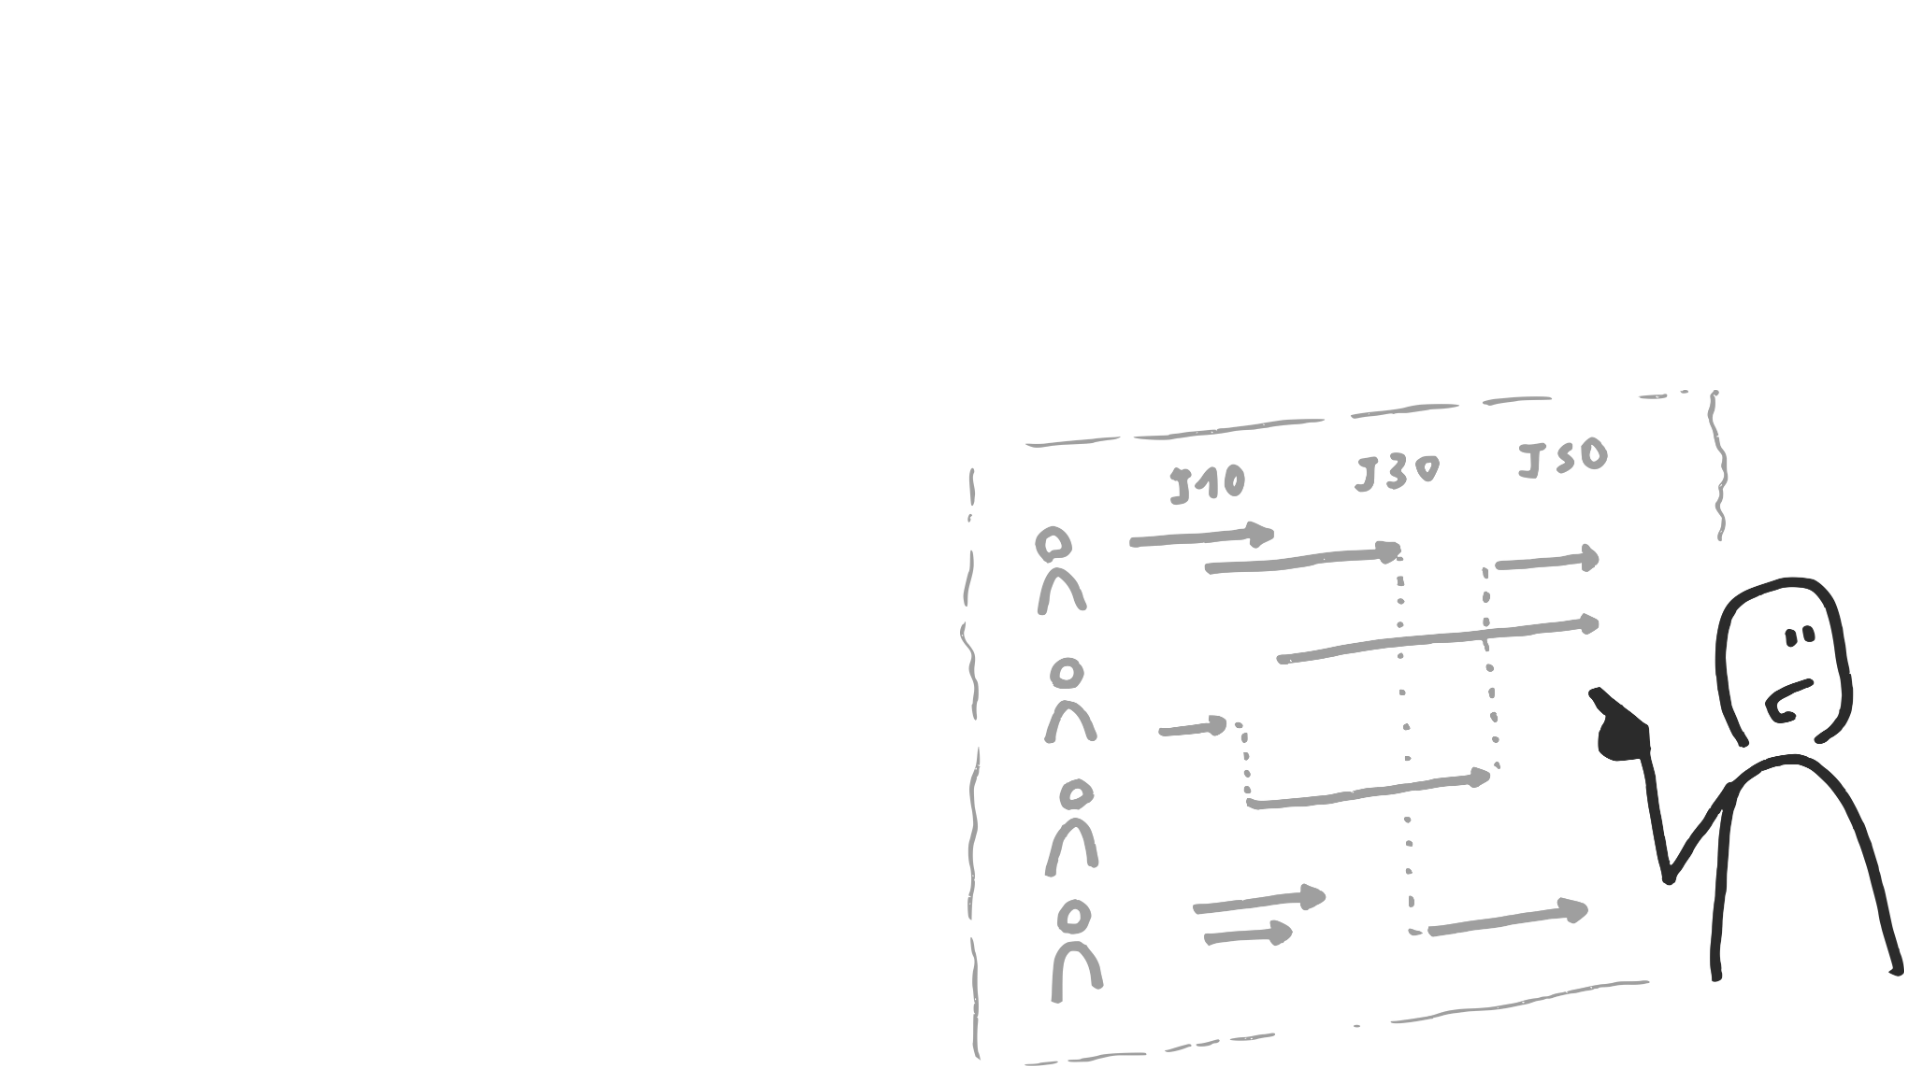 J10 J30 J50